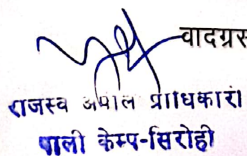 वादग्रस
राजस्व अपील प्राधिकारी
पाली केम्प-सिरोही